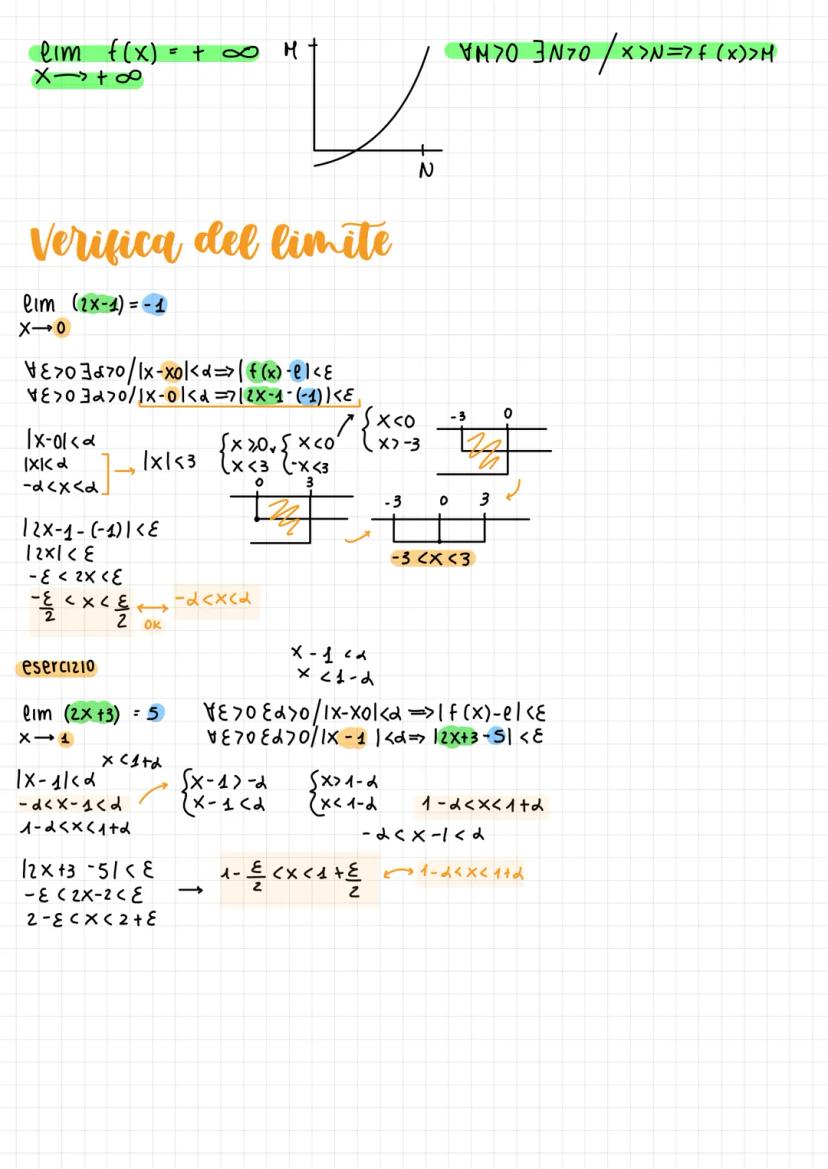 lim f(x) = + ∞
x → + ∞
M
N
∀M>0 ∃N>0 / x>N => f(x)>M
Verifica del limite
lim (2x-1) = -1
x → 0
∀ε>0 ∃α>0/|x-x0|<α => |f(x)-l|<ε
∀ε>0 ∃α>0/|x-0|<α => |2x-1-(-1)|<ε
|x-0|<α
|x|<α
-α<x<α
→ |x|<3
{x≥0 v {x<0
{x<3 {-x<3
{x<0
{x>-3
-3 0
0 3
-3 0 3
-3<x<3
|2x-1-(-1)|<ε
|2x|<ε
-ε<2x<ε
-ε/2 < x < ε/2 ↔ -α<x<α
OK
esercizio
x-1<α
x<1-α
lim (2x+3) = 5
x → 1
∀ε>0 εα>0/|x-x0|<α => |f(x)-l|<ε
∀ε>0 εα>0/|x-1|<α => |2x+3-5|<ε
x<1+α
|x-1|<α
-α<x-1<α
1-α<x<1+α
{x-1>-α
{x-1<α
{x>1-α
{x<1-α
1-α<x<1+α
-α<x-1<α
|2x+3-5|<ε
-ε<2x-2<ε
2-ε<x<2+ε
→ 1-ε/2 <x<1+ε/2 ↔ 1-α<x<1+α